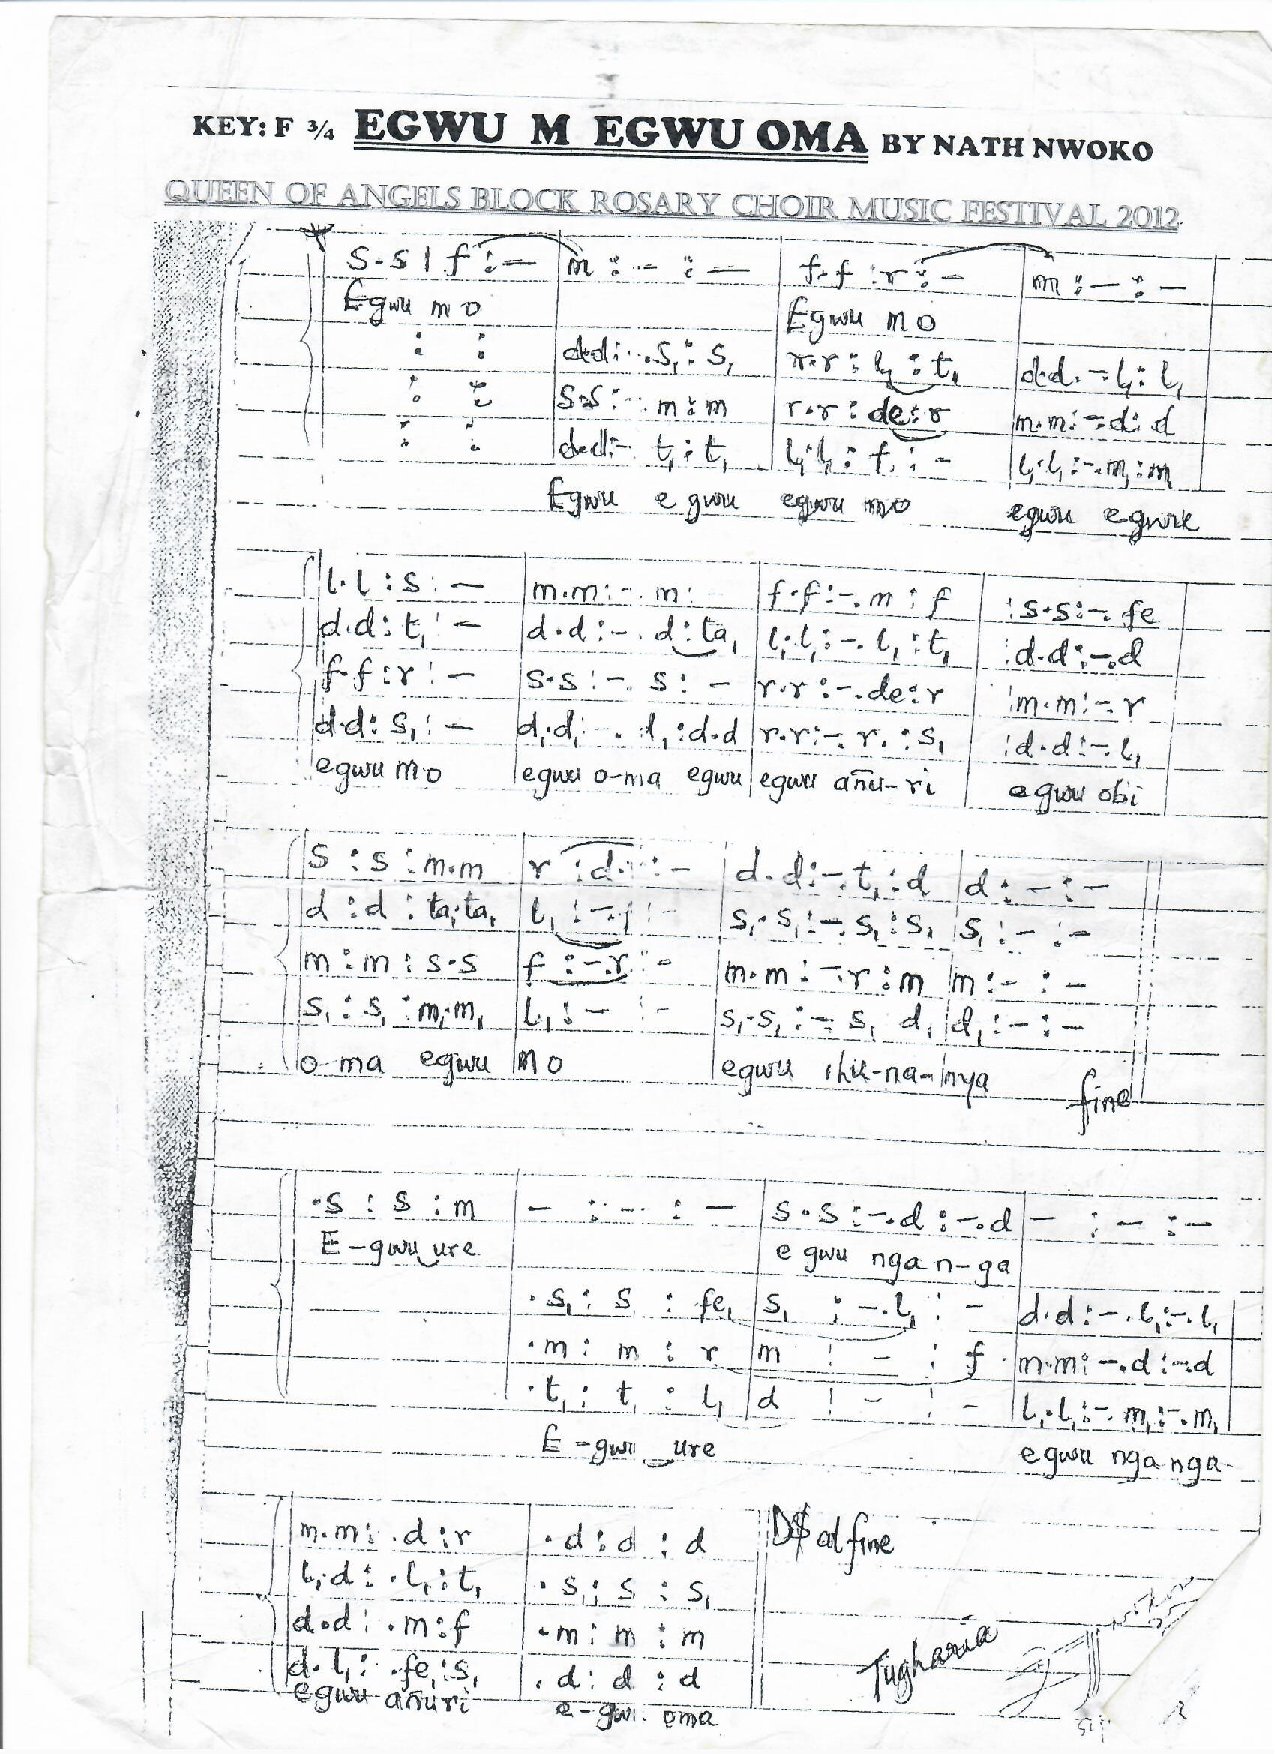 KEY: F 3/4 EGWU M EGWU OMA BY NATH NWOKO
QUEEN OF ANGELS BLOCK ROSARY CHOIR MUSIC FESTIVAL 2012
s.s | f :- m :- :- f.f :r :- m :- :-
Egwu mo Egwu mo
: : d.d:-.s₁:s₁ r.r:l₁:t₁ d.d.-l₁:l₁
: : s.s:-.m:m r.r:de:r m.m:-d:d
: : d.d:-t₁:t₁ l₁.l₁:f₁:- l₁.l₁:-.m₁:m₁
Egwu e gwu egwu mo egwu egwu
l.l:s:- m.m:-.m: f.f:-.m:f :s.s:-.fe
d.d:t₁:- d.d:-.d:ta₁ l₁.l₁:-.l₁:t₁ :d.d:-.d
f.f:r:- s.s:-.s:- r.r:-.de:r :m.m:-r
d.d:s₁:- d₁.d₁ . d₁:d.d r.r:-.r.:s₁ :d.d:-.l₁
egwu mo egwu o-ma egwu egwu añu-ri egwu obi
s :s :m.m r :d. :- d.d:-.t₁:d d:-:-
d :d :ta₁.ta₁ l₁ :-. :- s₁.s₁:-.s₁:s₁ s₁:-:-
m :m :s.s f :-.r :- m.m:-r:m m:-:-
s₁:s₁:m₁.m₁ l₁:- :- s₁.s₁:-.s₁ d₁ d₁:-:-
o-ma egwu mo egwu ihu-na-nya fine
.s :s :m - :- :- s.s:-.d:-.d - :- :-
E-gwu ure e gwu nga n-ga
.s₁:s :fe₁ s₁ :-.l₁ :- d.d:-.l₁:-.l₁
.m :m :r m :- :f m.m:-.d:-.d
.t₁:t :l₁ d :- :- l₁.l₁:-.m₁:-.m₁
E-gwu ure egwu nga nga
m.m: .d:r .d :d :d D$ al fine
l₁.d: .l₁:t₁ .s :s :s₁
d.d: .m:f .m :m :m
d.l₁: .fe₁:s₁ .d :d :d Tugharia
egwu añuri e-gwu oma